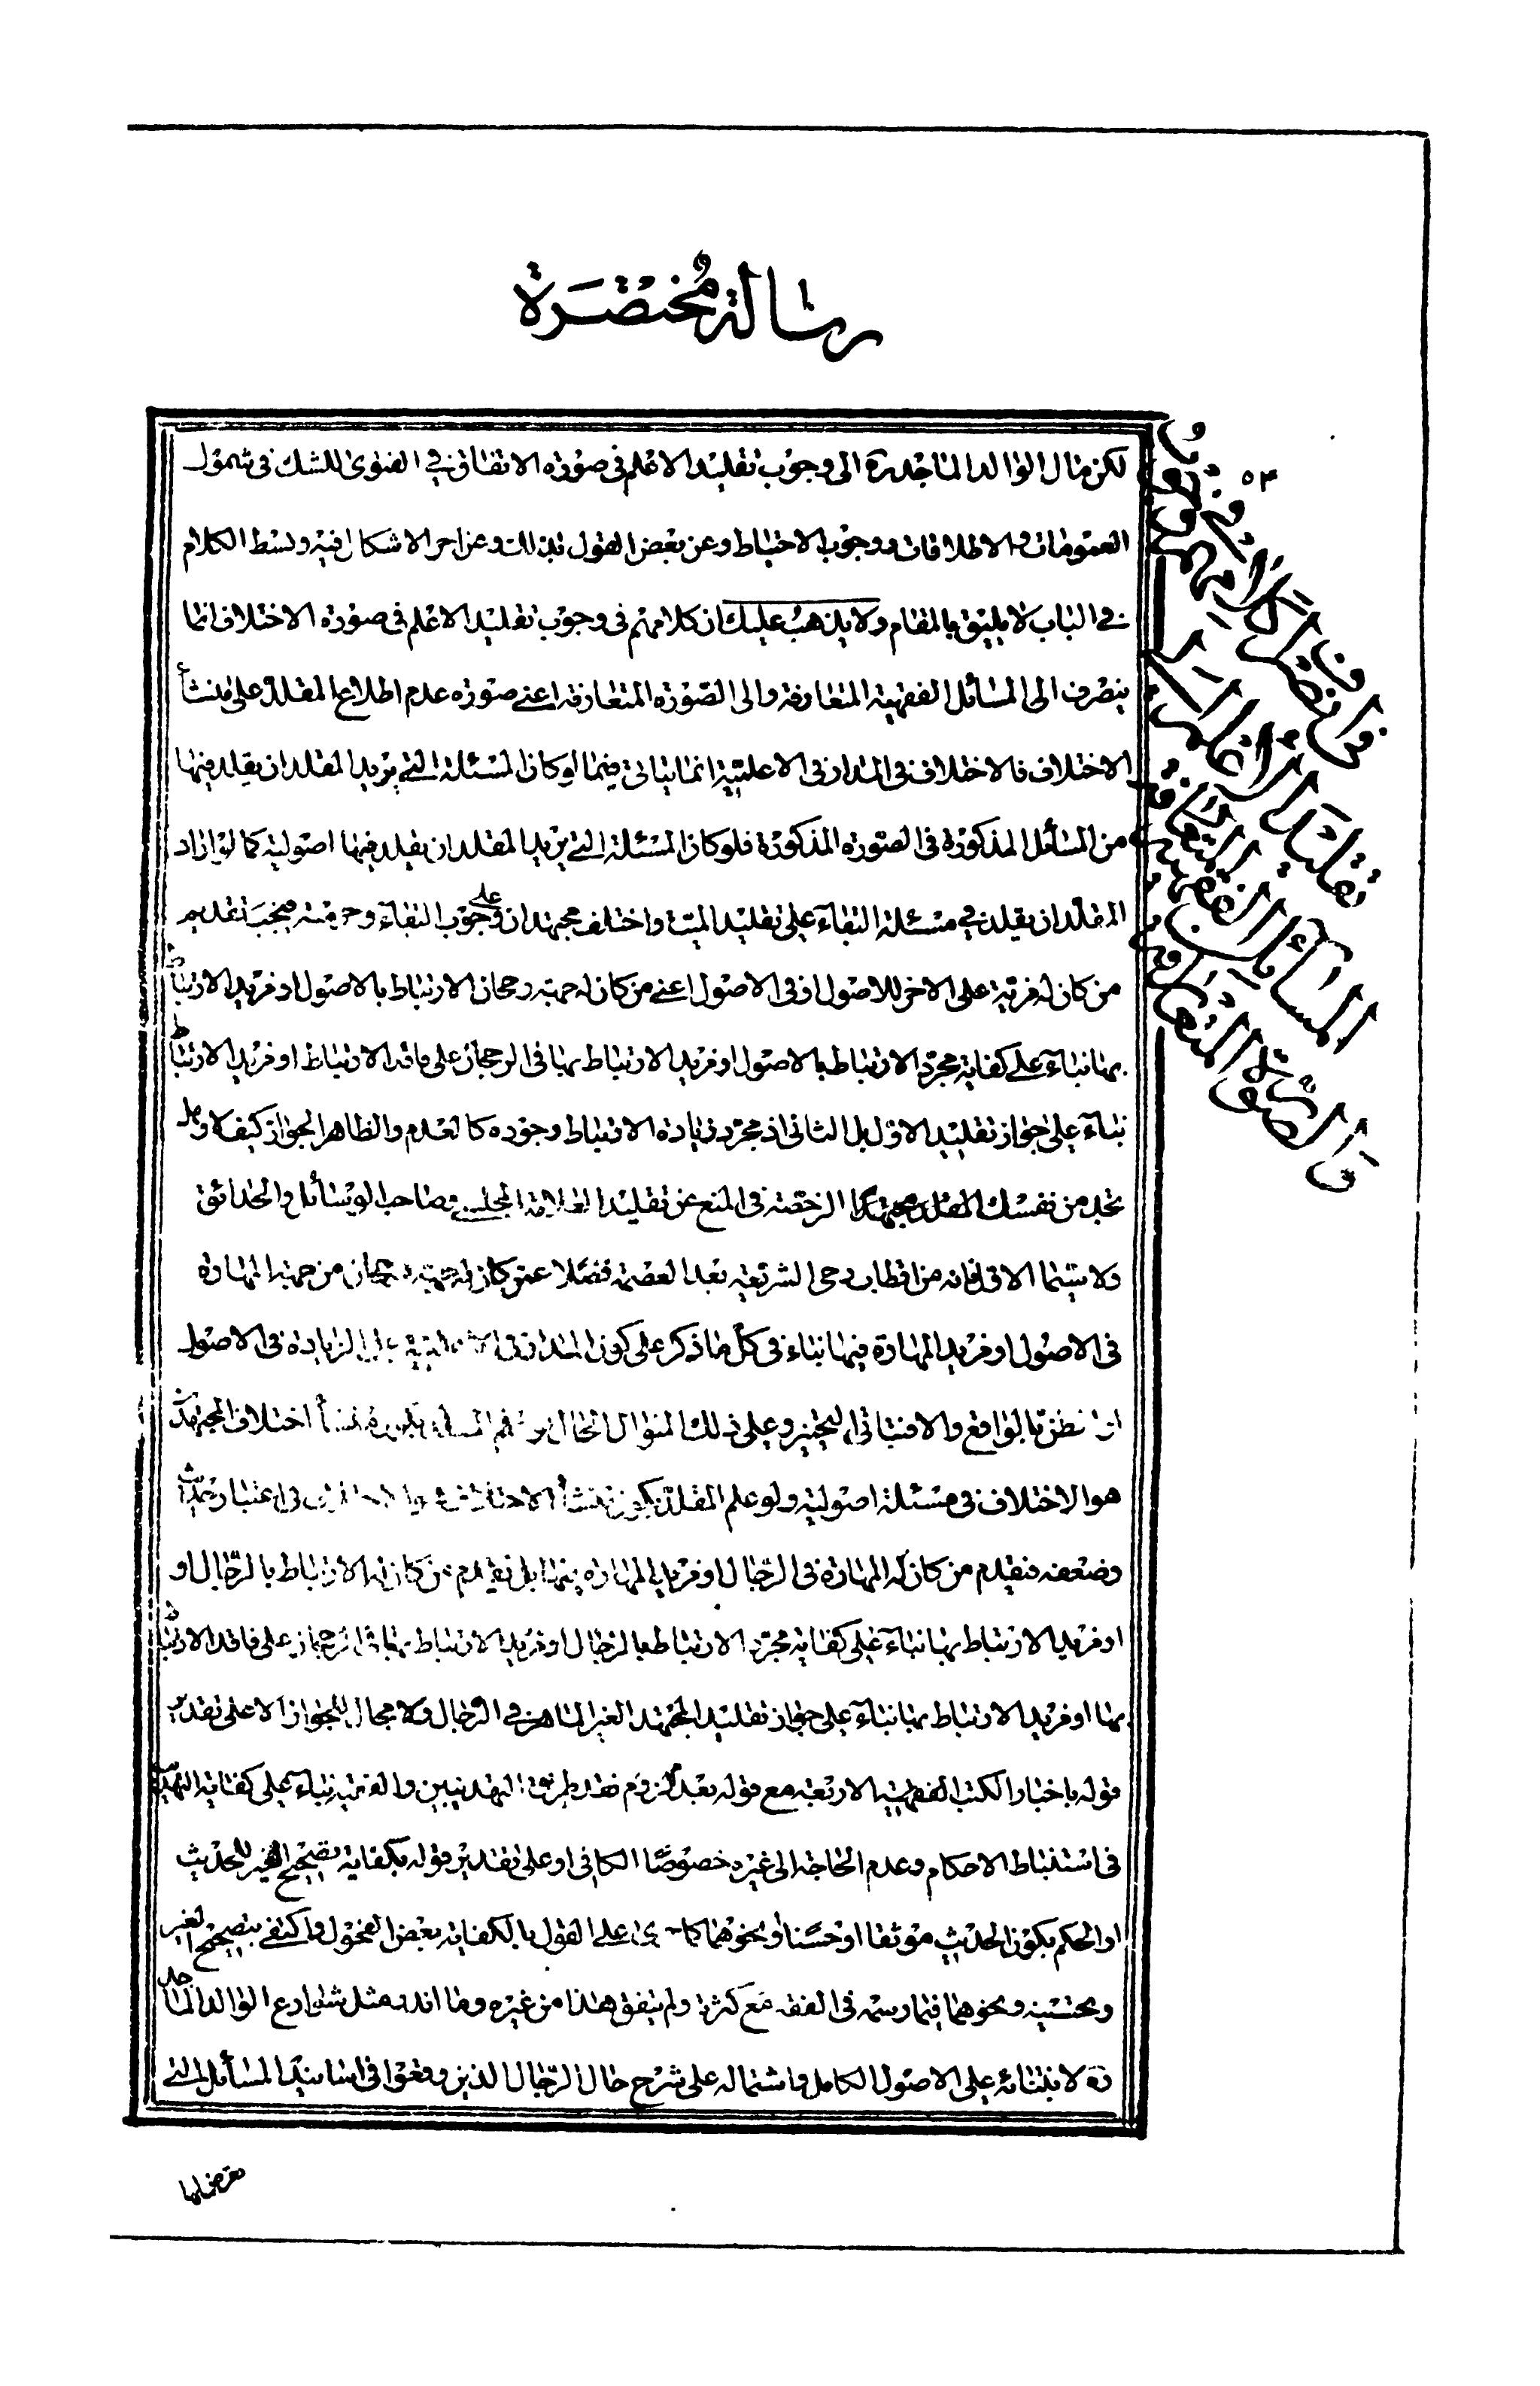 رسالة مختصرة
٥٣
في انصراف كلامهم في وجوب
تقليد الاعلم الى
المسائل الفقهية المتعارفة
والصورة المتعارفة
لكن مال الوالد الماجد ره الى وجوب تقليد الاعلم في صورة الاتفاق في الفتوى للشك في شمول
العمومات والاطلاقات ووجوب الاحتياط وعن بعض القول بذلك وعن اخر الاشكال فيه وبسط الكلام
في الباب لا يليق بالمقام ولا يذهب عليك ان كلامهم في وجوب تقليد الاعلم في صورة الاختلاف انما
ينصرف الى المسائل الفقهية المتعارفة والى الصورة المتعارفة اعني صورة عدم اطلاع المقلد على منشأ
الاختلاف فالاختلاف في المدار في الاعلمية انما يتاتى فيما لو كان المسئلة التي يريد المقلد ان يقلد فيها
من المسائل المذكورة في الصورة المذكورة فلو كان المسئلة التي يريد المقلد ان يقلد فيها اصولية كما لو اراد
المقلد ان يقلد في مسئلة البقاء على تقليد الميت واختلف مجتهدان على وجوب البقاء وحرمته فيجب تقديم
من كان له مزية على الاخر للاصول او في الاصول اعني من كان له جهة رجحان الارتباط بالاصول او مزيد الارتباط
بها بناء على كفاية مجرد الارتباط بالاصول او مزيد الارتباط بها في الرجحان على فاقد الارتباط او مزيد الارتباط
بناء على جواز تقليد الاول بل الثاني اذ مجرد زيادة الارتباط وجوده كالعدم والظاهر الجواز كيف لا وهل
تجد من نفسك الرخصة في المنع عن تقليد العلامة المجلسي وصاحب الوسائل والحدائق
ولا سيما الاول فانه من اقطاب رحى الشريعة بعد العصمة فضلا عمن كان له جهة رجحان من جهة المهارة
في الاصول او مزيد المهارة فيها بناء في كل ما ذكر على كون المدار في الاعلمية على الزيادة في الاصول
الظن بالواقع والافتاء في البحث وعلى ذلك المنوال الحال لو علم المقلد بكون منشأ اختلاف المجتهدين
هو الاختلاف في مسئلة اصولية ولو علم المقلد بكون منشأ الاختلاف هو الاختلاف في اعتبار حديث
وضعفه فيقدم من كان له المهارة في الرجال او مزيد المهارة فيها بل يقدم من كان له الارتباط بالرجال او
او مزيد الارتباط بها بناء على كفاية مجرد الارتباط بالرجال او مزيد الارتباط بها في الرجحان على فاقد الارتباط
بها او مزيد الارتباط بها بناء على جواز تقليد المجتهد الغير الماهر في الرجال ولا مجال للجواز الا على تقدير
قوله باخبار الكتب الفقهية الاربعة مع قوله بعد لزوم نقد طريق التهذيبين والفقيه بناء على كفاية التهذيب
في استنباط الاحكام وعدم الحاجة الى غيره خصوصا الكافي او على تقدير قوله بكفاية تصحيح الغير للحديث
او الحكم بكون الحديث موثقا او حسنا او نحوهما كما جرى على القول بالكفاية بعض الفحول واكتفى بتصحيح الغير
وتحسينه ونحوهما فيما رسمه في الفقه مع كثرته ولم يتفق هذا من غيره وما اندر مثل شوارع الوالد الماجد
ره لابتنائه على الاصول الكامل واشتماله على شرح حال الرجال الذين وقعوا في اسانيد المسائل التي
تعرض لها